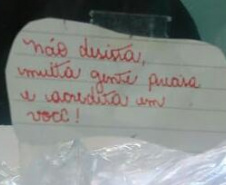 não desista,
muita gente precisa
e acredita em
você!